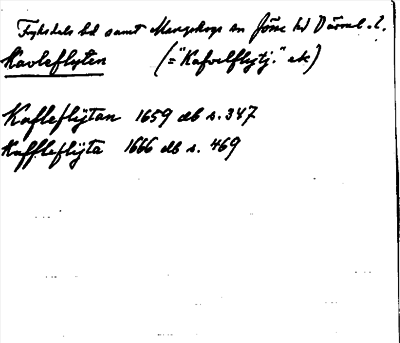 Fryksdals hd samt Mangskogs sn Jösse hd Värml. l.
Kavleflyten (="Kafvelflytj." ek)
Kafleflÿtan 1659 db s. 347
Kaffleflÿta 1666 db s. 469